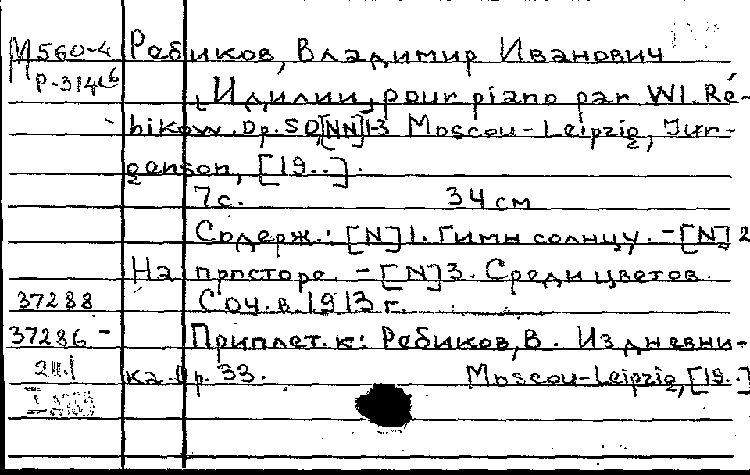 М560-4 Ребиков, Владимир Иванович
Р-314
[Идилии] pour piano par Wl. Ré-
bikow. Op. 50, [NN] 1-3 Moscou-Leipzig, Jur-
genson, [19..].
7 с. 34 см
Содерж.: [N] 1. Гимн солнцу. - [N] 2
На просторе. - [N] 3. Среди цветов.
37288 Соч. в 1913 г.
37286 - Приплет. к: Ребиков, В. Из дневни-
ка. Op. 33. Moscou-Leipzig, [19..]